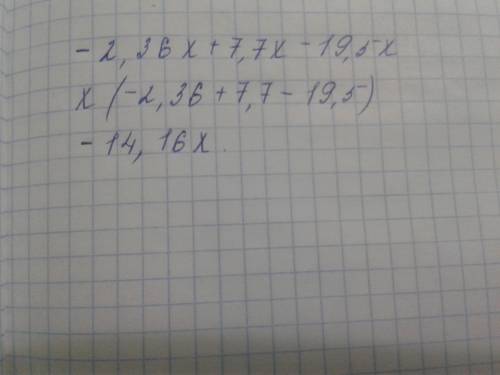 - 2, 36x + 7,7x - 19,5x
x (-2, 36 + 7,7 - 19,5)
- 14, 16x.